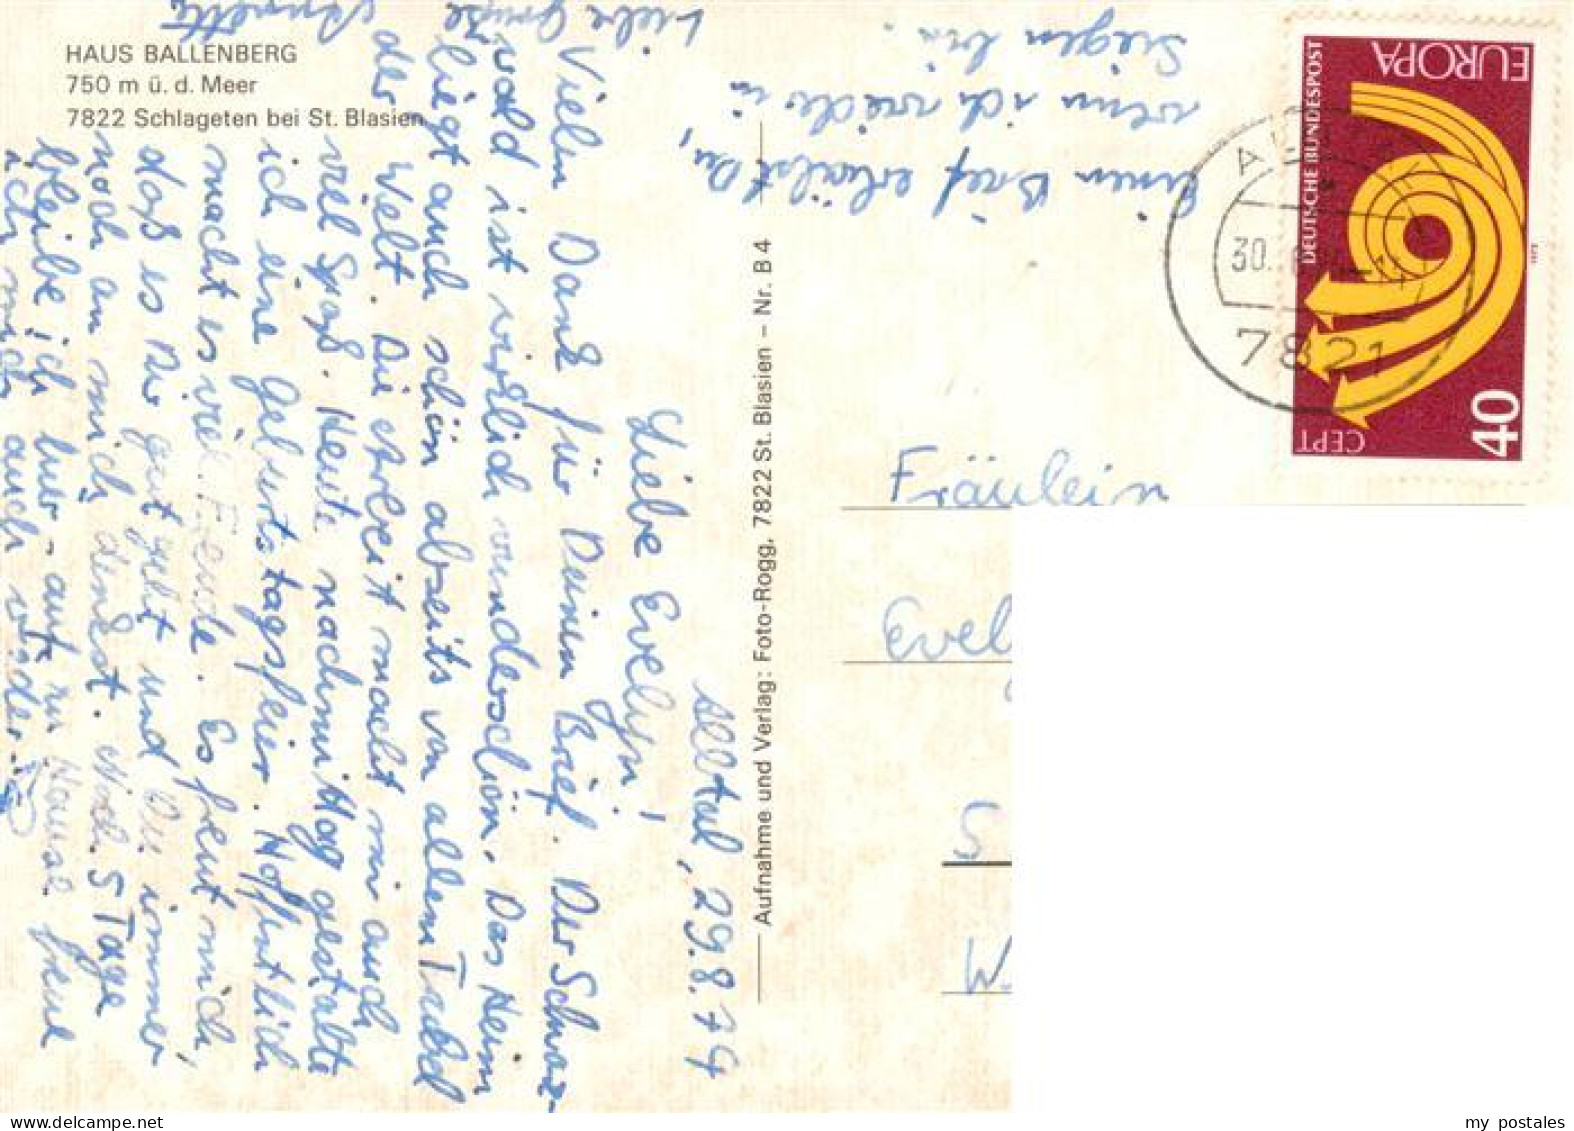 HAUS BALLENBERG
750 m ü. d. Meer
7822 Schlageten bei St. Blasien
Aufnahme und Verlag: Foto-Rogg, 7822 St. Blasien – Nr. B 4
29.8.74
Liebe Evelyn!
Vielen Dank für Deinen Brief. Der Schwarz-
wald ist wirklich wunderschön. Das Heim
liegt auch schön abseits von allem Trubel
der Welt. Die Arbeit macht mir auch
viel Spaß. Heute nachmittag gestalte
ich eine Geburtstagsfeier. Hoffentlich
macht es viel Freude. Es freut mich,
daß es Dir gut geht und Du immer
noch an mich denkst. Noch 5 Tage
bleibe ich hier - auf zu Hause freue
ich mich auch wieder.
Liebe Grüße
Annette
einen Brief erhälst Du,
wenn ich wieder in
Siegen bin.
Fräulein
Evel
S
W
DEUTSCHE BUNDESPOST
EUROPA
CEPT
40
1973
30.
7821
my postales